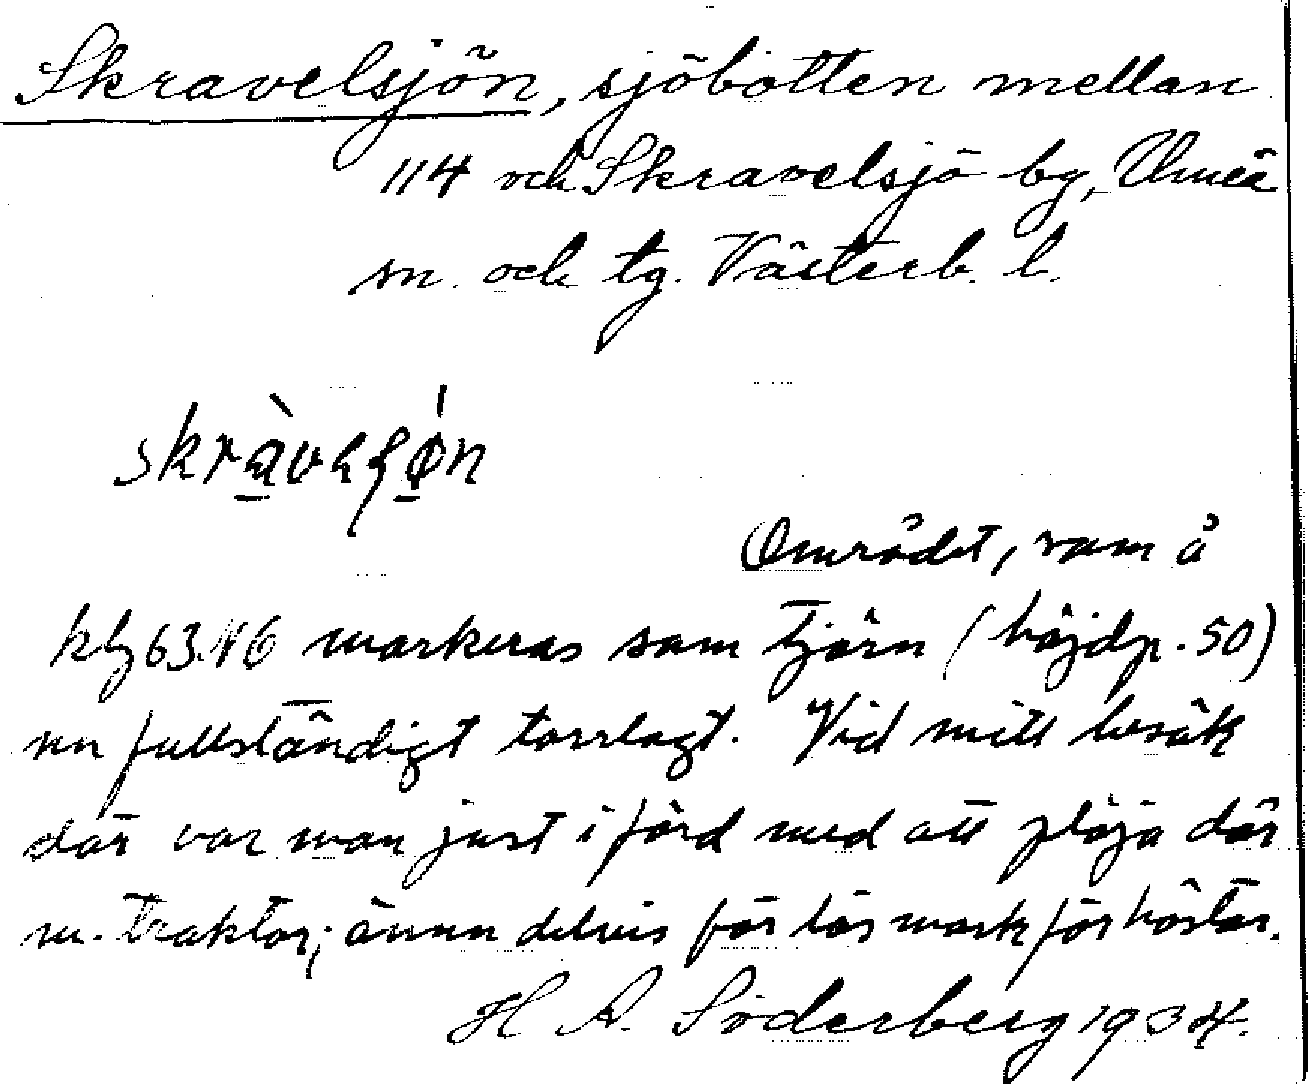 Skravelsjön, sjöbotten mellan
114 och Skravelsjö by, Umeå
sn. och tg. Västerb. l.
Området, som å
kbl 63 NO markeras som tjärn (höjdp. 50)
nu fullständigt torrlagt. Vid mitt besök
där var man just i färd med att plöja där
m. traktor; ännu delvis för lös mark för hästar.
H. A. Söderberg 1934.